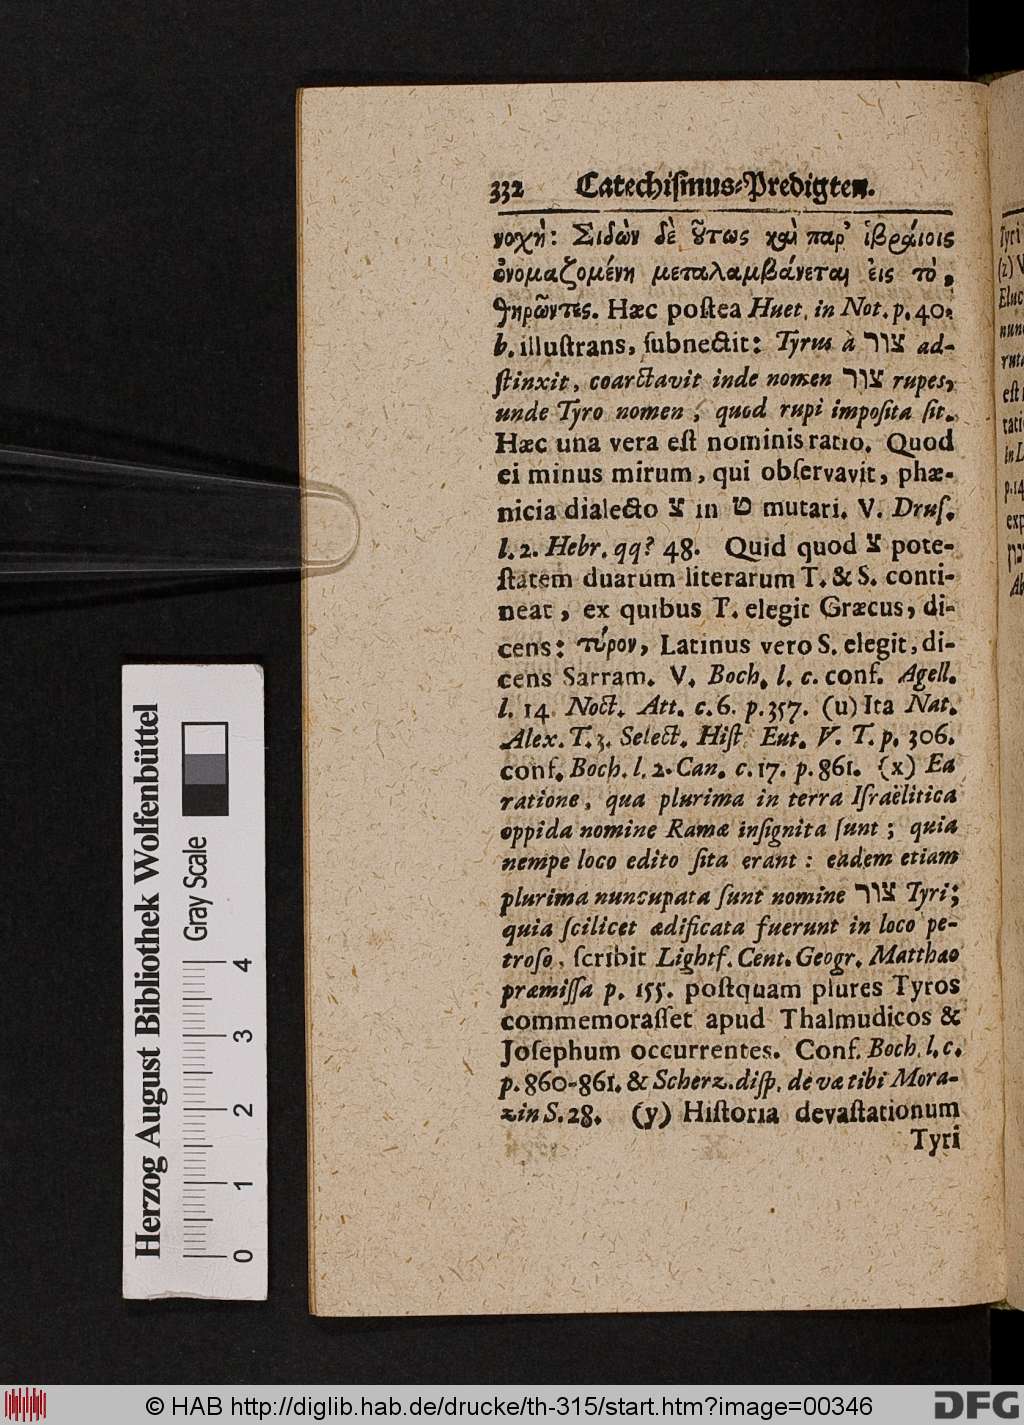 332 Catechiſmus-Predigten.
νοχὴ: Σιδὼν δὲ ὅτως καὶ παρ' ἑβραίοις
ὀνομαζομένη μεταλαμβάνεται εἰς τὸ,
θηρῶντες. Hæc poſtea Huet, in Not. p. 40.
b. illuſtrans, ſubnectit: Tyrus à צור ad-
ſtinxit, coarctavit inde nomen צור rupes,
unde Tyro nomen, quod rupi impoſita ſit.
Hæc una vera eſt nominis ratio. Quod
ei minus mirum, qui obſervavit, phæ-
nicia dialecto צ in ט mutari. V. Druſ.
l. 2. Hebr. qq? 48. Quid quod צ pote-
ſtatem duarum literarum T. & S. conti-
neat, ex quibus T. elegit Græcus, di-
cens: τύρον, Latinus vero S. elegit, di-
cens Sarram. V. Boch. l. c. conf. Agell.
l. 14 Noct. Att. c. 6. p. 357. (u) Ita Nat.
Alex. T. 3. Select. Hiſt Eut. V. T. p. 306.
conf. Boch. l. 2. Can. c. 17. p. 861. (x) Ea
ratione, qua plurima in terra Iſraëlitica
oppida nomine Ramæ inſignita ſunt; quia
nempe loco edito ſita erant: eadem etiam
plurima nuncupata ſunt nomine צור Tyri;
quia ſcilicet ædificata fuerunt in loco pe-
troſo, ſcribit Lightf. Cent. Geogr. Matthæo
præmiſſa p. 155. poſtquam plures Tyros
commemoraſſet apud Thalmudicos &
Joſephum occurrentes. Conf. Boch. l. c.
p. 860-861. & Scherz. diſp. de væ tibi Mora-
zin S. 28. (y) Hiſtoria devaſtationum
Tyri
Herzog August Bibliothek Wolfenbüttel
Gray Scale
0 1 2 3 4
© HAB http://diglib.hab.de/drucke/th-315/start.htm?image=00346
DFG